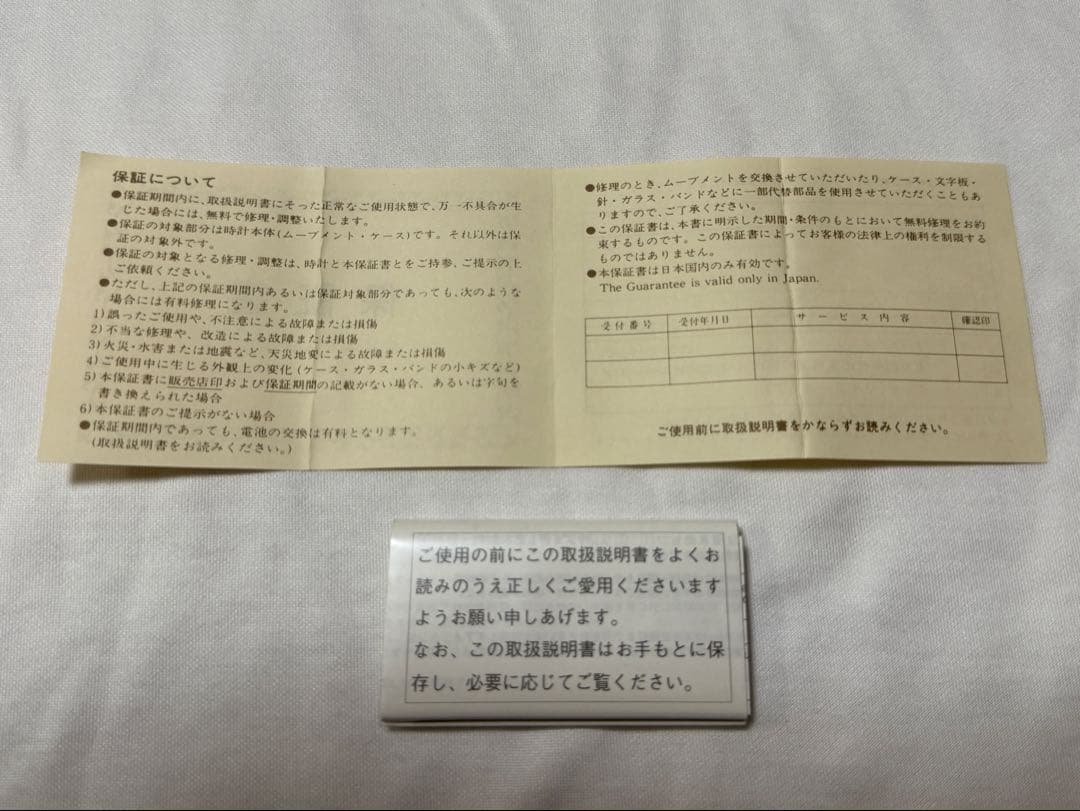 保証について
●保証期間内に、取扱説明書にそった正常なご使用状態で、万一不具合が生
じた場合には、無料で修理・調整いたします。
●保証の対象部分は時計本体(ムーブメント・ケース)です。それ以外は保
証の対象外です。
●保証の対象となる修理・調整は、時計と本保証書とをご持参、ご提示の上
ご依頼ください。
●ただし、上記の保証期間内あるいは保証対象部分であっても、次のような
場合には有料修理になります。
1)誤ったご使用や、不注意による故障または損傷
2)不当な修理や、改造による故障または損傷
3)火災・水害または地震など、天災地変による故障または損傷
4)ご使用中に生じる外観上の変化(ケース・ガラス・バンドの小キズなど)
5)本保証書に販売店印および保証期間の記載がない場合、あるいは字句を
書き換えられた場合
6)本保証書のご提示がない場合
●保証期間内であっても、電池の交換は有料となります。
(取扱説明書をお読みください。)
●修理のとき、ムーブメントを交換させていただいたり、ケース・文字板・
針・ガラス・バンドなどに一部代替部品を使用させていただくこともあ
りますので、ご了承ください。
●この保証書は、本書に明示した期間・条件のもとにおいて無料修理をお約
束するものです。この保証書によってお客様の法律上の権利を制限する
ものではありません。
●本保証書は日本国内のみ有効です。
The Guarantee is valid only in Japan.
受付番号 受付年月日 サービス内容 確認印
ご使用前に取扱説明書をかならずお読みください。
ご使用の前にこの取扱説明書をよくお
読みのうえ正しくご愛用くださいます
ようお願い申しあげます。
なお、この取扱説明書はお手もとに保
存し、必要に応じてご覧ください。